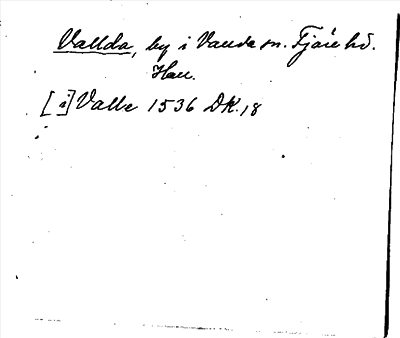 Vallda, by i Vallda sn. Fjäre hd.
Hall.
[i] Valle 1536 DK. 18